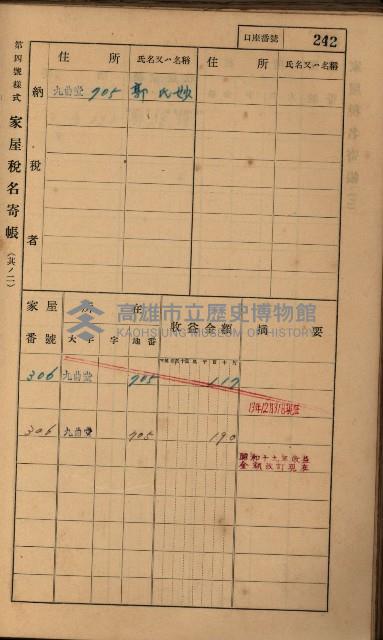 口座番號 242
第四號樣式 家屋稅名寄帳 (其ノ二)
納稅者
住所 氏名又ハ名稱 住所 氏名又ハ名稱
九曲堂 705 郭氏妙
家屋番號 所在 收益金額 摘要
大字 字 地番
306 九曲堂 705 117
306 九曲堂 705 190
昭和十九年收益
金額改訂現在
高雄市立歷史博物館
KAOHSIUNG MUSEUM OF HISTORY